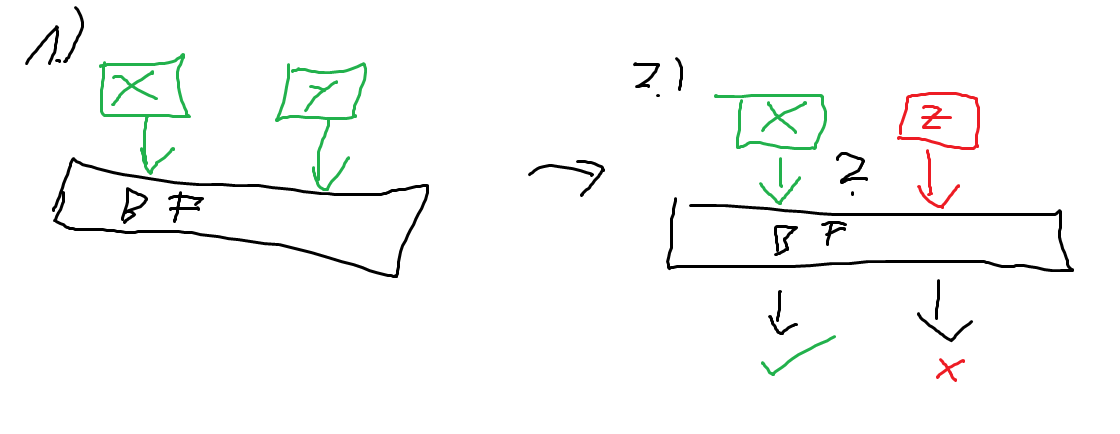 1.)
X Y
B F
2.)
X Z
?
B F